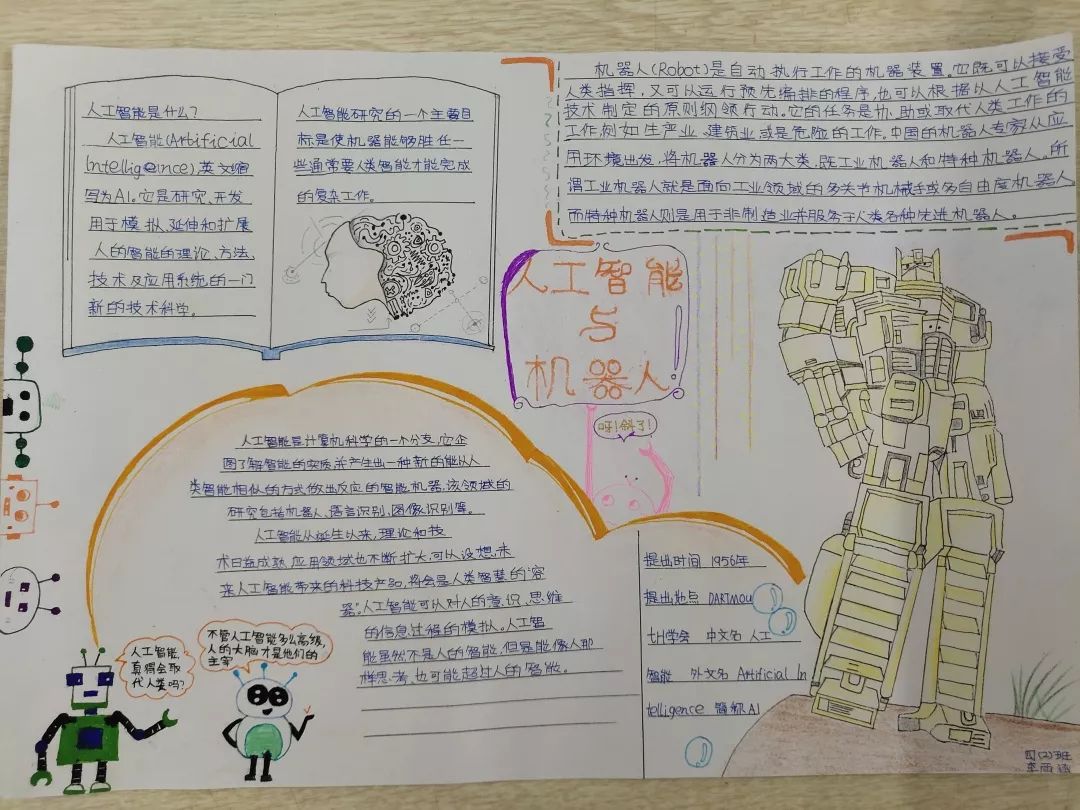 人工智能是什么?
人工智能(Artificial
Intelligence),英文缩
写为AI。它是研究、开发
用于模拟、延伸和扩展
人的智能的理论、方法、
技术及应用系统的一门
新的技术科学。
人工智能研究的一个主要目
标是使机器能够胜任一
些通常要人类智能才能完成
的复杂工作。
机器人(Robot)是自动执行工作的机器装置。它既可以接受
人类指挥,又可以运行预先编排的程序,也可以根据以人工智能
技术制定的原则纲领行动。它的任务是协助或取代人类工作的
工作,例如生产业、建筑业,或是危险的工作。中国的机器人专家从应
用环境出发,将机器人分为两大类,既工业机器人和特种机器人。所
谓工业机器人就是面向工业领域的多关节机械手或多自由度机器人。
而特种机器人则是用于非制造业并服务于人类各种先进机器人。
人工智能
与
机器人
呀!斜了!
人工智能是计算机科学的一个分支,它企
图了解智能的实质,并产生出一种新的能以人
类智能相似的方式做出反应的智能机器,该领域的
研究包括机器人、语言识别、图像识别等。
人工智能从诞生以来,理论和技
术日益成熟,应用领域也不断扩大,可以设想,未
来人工智能带来的科技产品,将会是人类智慧的“容
器”。人工智能可以对人的意识、思维
的信息过程的模拟。人工智
能虽然不是人的智能,但是能像人那
样思考、也可能超过人的智能。
提出时间 1956年
提出地点 DARTMOU
TH学会 中文名 人工
智能 外文名 Artificial In
telligence 简称AI
人工智能,
真得会取
代人类吗?
不管人工智能多么高级,
人的大脑才是他们的
主宰
四(2)班
李雨